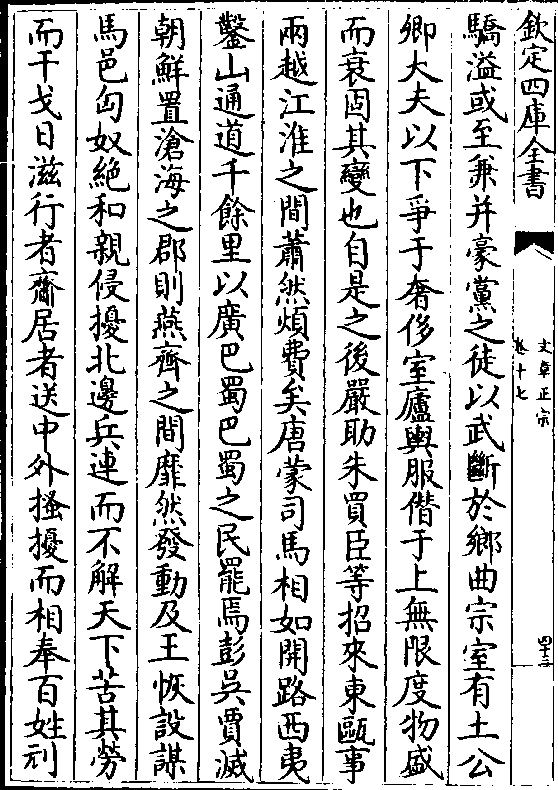 欽定四庫全書
文章正宗
卷十七
四十三
驕溢或至兼并豪黨之徒以武斷於鄉曲宗室有土公
卿大夫以下爭于奢侈室廬輿服僭于上無限度物盛
而衰固其變也自是之後嚴助朱買臣等招來東甌事
兩越江淮之間蕭然煩費矣唐蒙司馬相如開路西夷
鑿山通道千餘里以廣巴蜀巴蜀之民罷焉彭吳賈滅
朝鮮置滄海之郡則燕齊之間靡然發動及王恢設謀
馬邑匈奴絶和親侵擾北邊兵連而不解天下苦其勞
而干戈日滋行者齎居者送中外搔擾而相奉百姓刓